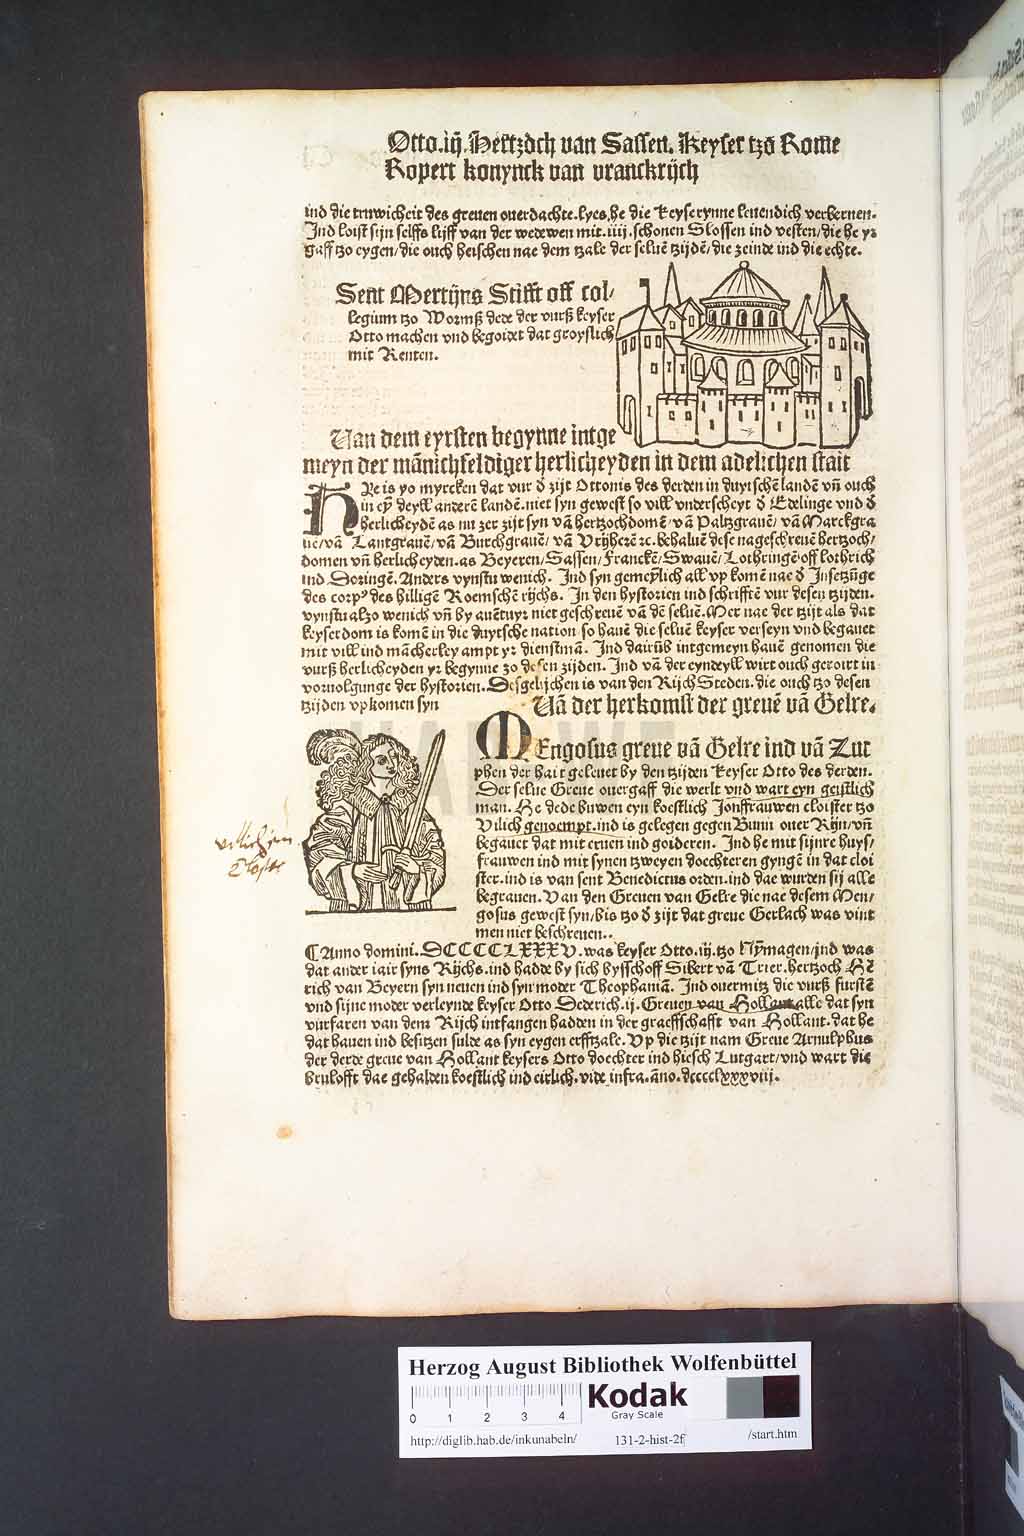 Otto.iij.Hertzoch van Sassen. Keyser tzo Rome
Ropert konynck van vranckrijch
ind die truwicheit des greuen ouerdachte.lyes,he die keyserynne leuendich verbernen.
Jnd loist sijn selffs lijff van der wedewen mit.iiij.schonen Slossen ind vesten/die he yr
gaff tzo eygen/die ouch heischen nae dem tzale der seluē tzijdē/die zeinde ind die echte.
Sent Mertijns Stifft off col-
legium tzo Wormß dede der vurß keyser
Otto machen vnd begoidet dat groyslich
mit Renten.
Van dem eyrsten begynne intge
meyn der mānichfeldiger herlicheyden in dem adelichen stait
HYe is yo myrcken dat vur đ zijt Ottonis des derden in duytschē landē vñ ouch
in eỹ deyll anderē landē.niet syn gewest so vill vnderscheyt đ Edelinge vnd đ
herlicheydē as nu zer zijt syn vā hertzochdomē/vā Paltzgrauē/vā Marckgra
uē/vā Lantgrauē/vā Burchgrauē/vā Vrijherē ꝛc.behaluē dese nageschreuē hertzoch/
domen vñ herlicheyden.as Beyeren/Sassen/Franckē/Swauē/Lothringē off lothrich
ind Doringē. Anders vynstu wenich. Jnd syn gemeỹlich all vp komē nae đ Jnsetzūge
des corpꝰ des hilligē Roemschē rijchs. Jn den hystorien ind schrifftē vur desen tzijden.
vynstu alzo wenich vñ by auētuyr niet geschreuē vā dē seluē.Mer nae der tzijt als dat
keyserdom is komē in die duytsche nation so hauē die seluē keyser verseyn vnd begauet
mit vill ind mācherley ampt yr dienstmā. Jnd dairūb intgemeyn hauē genomen die
vurß herlicheyden yr begynne zo desen zijden. Jnd vā der eyndeyll wirt ouch geroirt in
vornolgunge der hystorien.Desgelijchen is van den Rijch Steden.die ouch tzo desen
tzijden vpkomen syn
Uā der herkomst der greuē vā Gelre.
MEngosus greue vā Gelre ind vā Zut
phen der hait geleuet by den tzijden keyser Otto des derden.
Der selue Greue ouergaff die werlt vnd wart eyn geistlich
man. He dede buwen eyn koestlich Jonffrauwen cloister tzo
Vilich genoempt.ind is gelegen gegen Bunn ouer Rijn/vñ
begauet dat mit eruen ind goideren. Jnd he mit sijnre huys/
frauwen ind mit synen tzweyen doechteren gyngē in dat cloi
ster.ind is van sent Benedictus orden.ind dae wurden sij alle
begrauen. Van den Greuen van Gelre die nae desem Men/
gosus gewest syn/bis tzo đ zijt dat greue Gerlach was vint
men niet beschreuen..
¶Anno domini.DCCCCLXXXV.was keyser Otto.iij.tzo Nỹmagen/ind was
dat ander iair syns Rijchs.ind hadde by sich bysschoff Sibert vā Trier.hertzoch Hē
rich van Beyern syn neuen ind syn moder Theophaniā. Jnd ouermitz die vurß furstē
vnd sijne moder verleynde keyser Otto Dederich.ij.Greuen van Hollant alle dat syn
vurfaren van dem Rijch intfangen hadden in der graeffschafft van Hollant.dat he
dat hauen ind besitzen sulde as syn eygen erfftzale.Vp die tzijt nam Greue Arnulphus
der derde greue van Hollant keysers Otto doechter ind hiesch Lutgart/vnd wart die
brulofft dae gehalden koestlich ind eirlich.vide infra.āno.dcccclxxxviij.
Closter
Herzog August Bibliothek Wolfenbüttel
0 1 2 3 4
Kodak
Gray Scale
http://diglib.hab.de/inkunabeln/ 131-2-hist-2f /start.htm